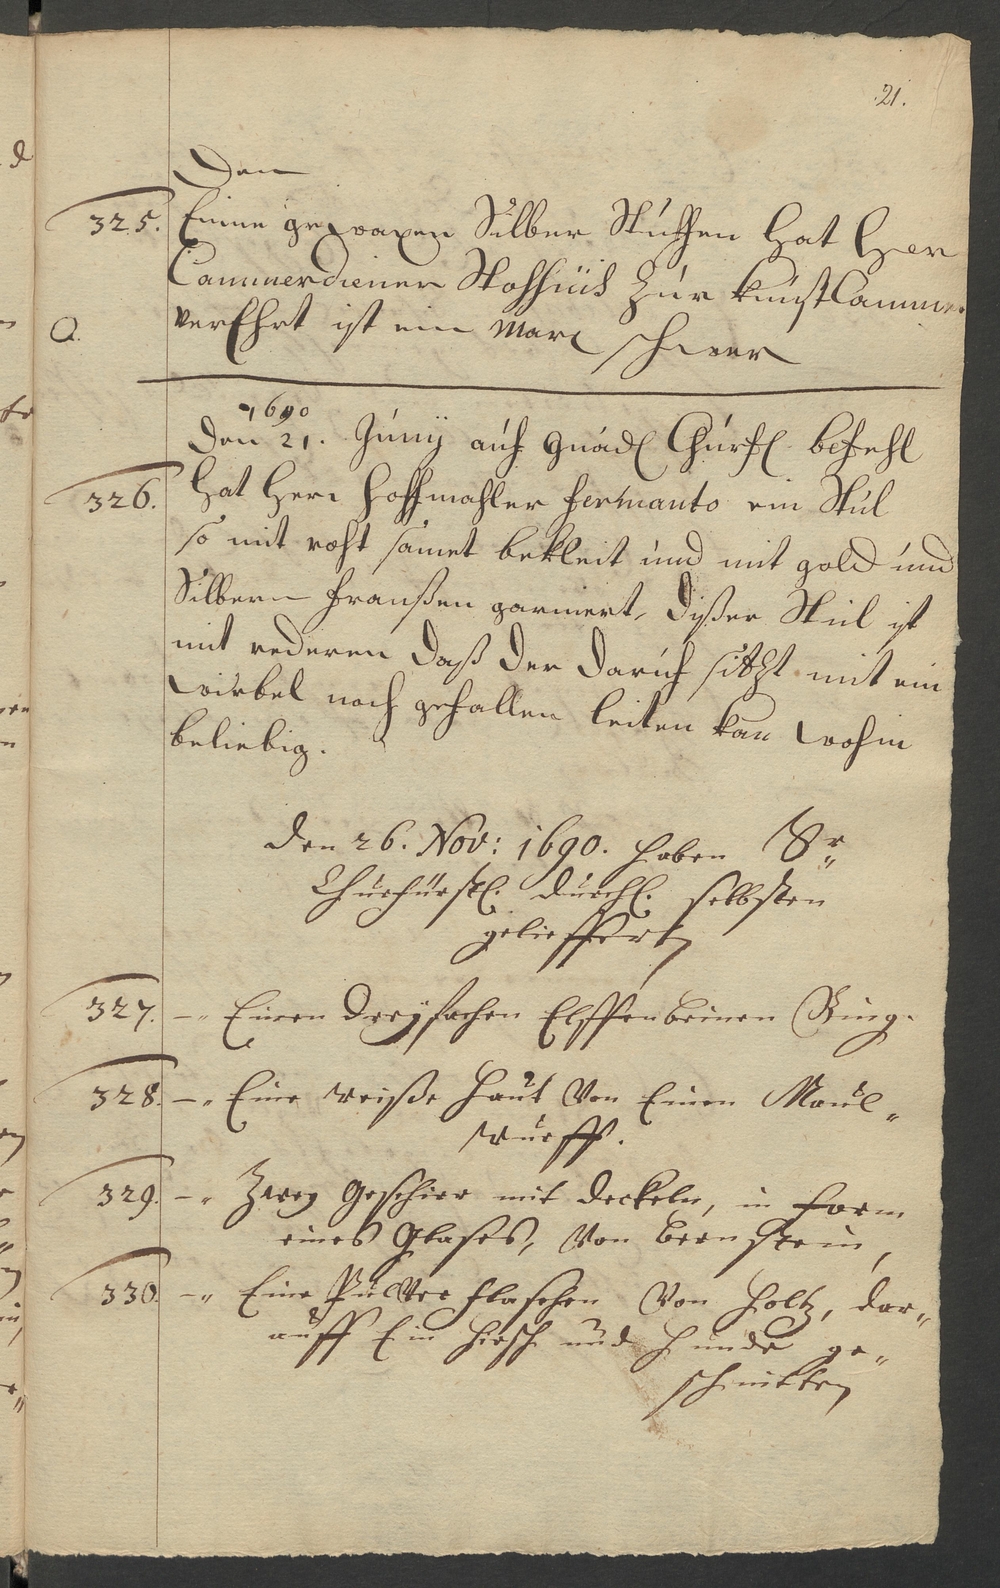 21.
Den
325. Einne gewaxen Silber Stuffen hat Herr
Cammerdiener Stoffius zur kunstCammer
Q.
verEhrt ist ein Marc schwer
1690
Den 21. Junij auf gnäd Churf befehl
326. hat Herr Hoffmahler fermanto ein Stul
so mit roht samet bekleit und mit gold und
Silbern fransen garniert, dißer Stul ist
mit rederen daß der darauf sitzt mit ein
wirbel nach gefallen leiten kan wohin
beliebig.
Den 26. Nov: 1690. haben Sr
Churfürstl. durchl. selbsten
gelieffert
327. -" Einen dreyfachen Elffenbeinen Ring.
328. -" Eine weiße haut Von Einen Maul„
wurff.
329. -" Zwey geschirr mit deckeln, in form
eines Glases, Von bernstein,
330. -" Eine Pulver flaschen Von holtz, dar„
auff Ein hirsch und hunde ge„
schnitten